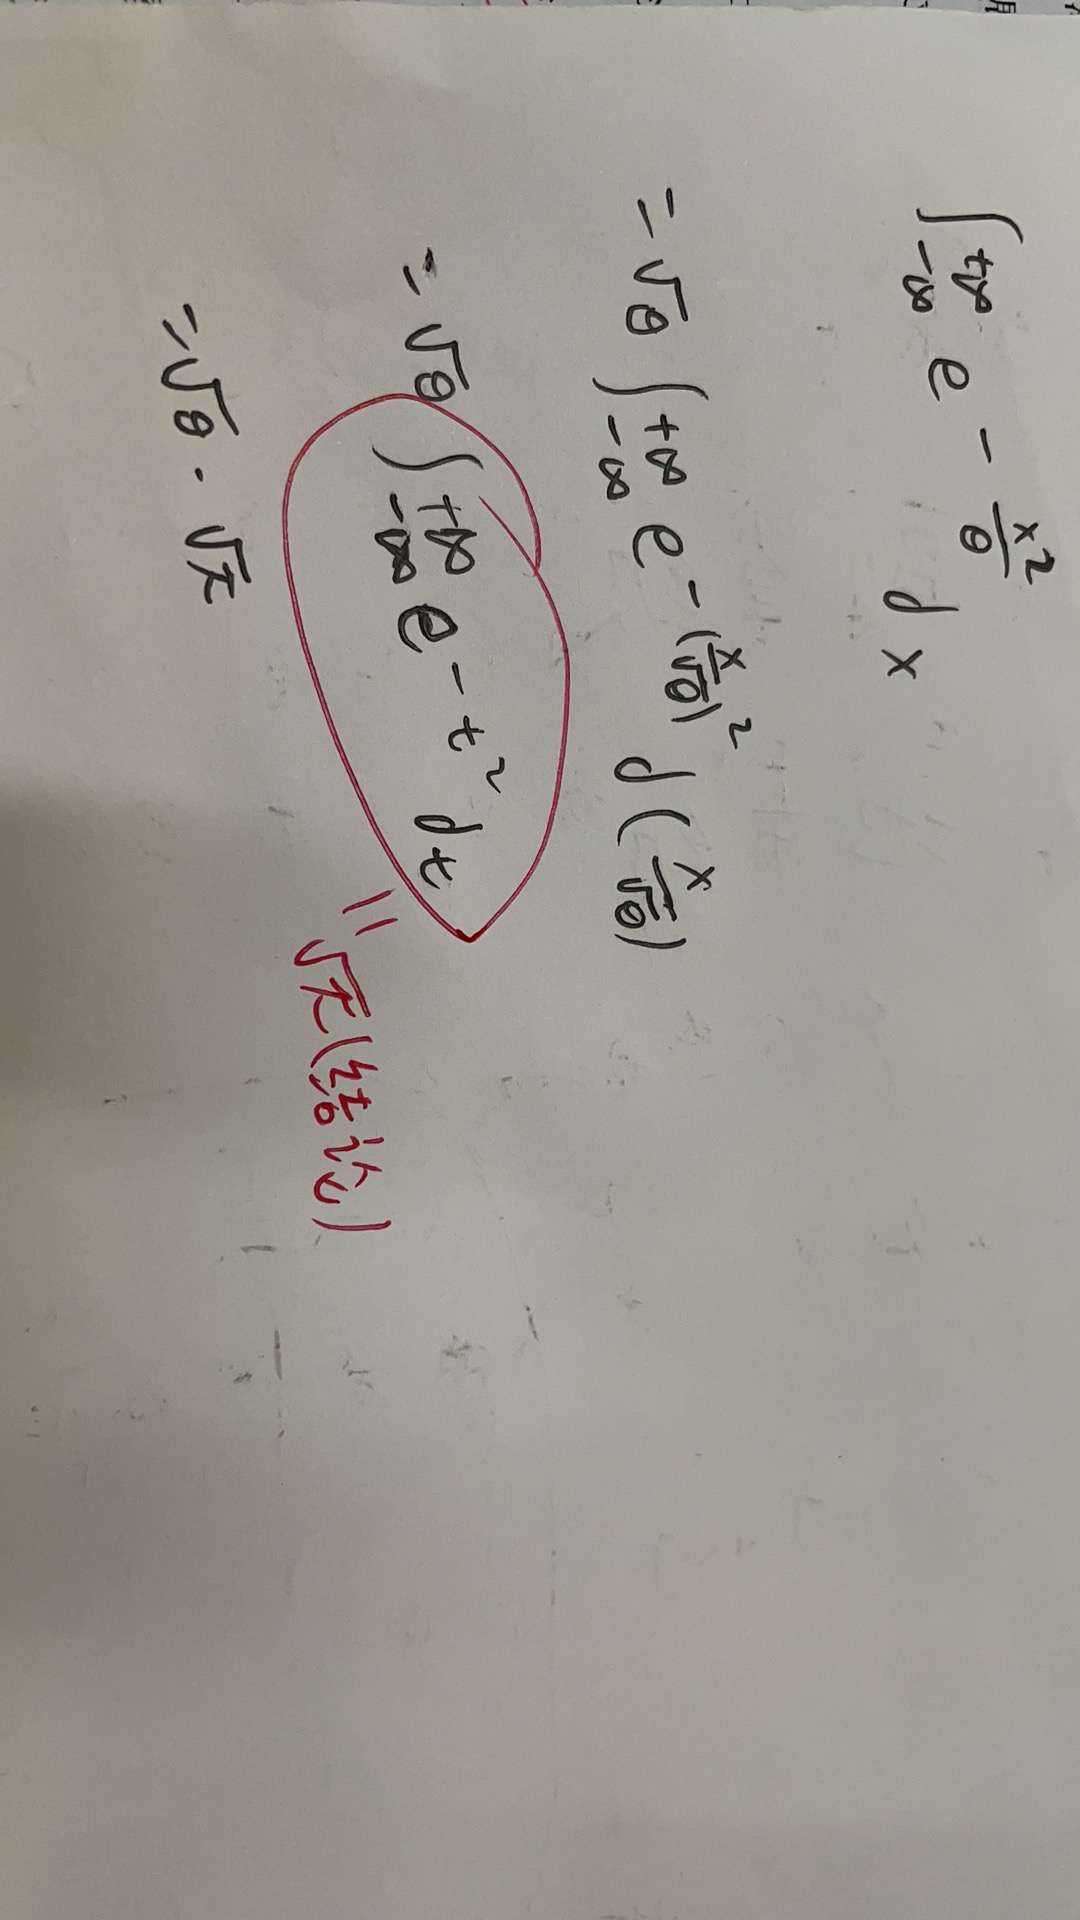 ∫_{-∞}^{+∞} e^{-\frac{x²}{θ}} dx
= √θ ∫_{-∞}^{+∞} e^{-(\frac{x}{√θ})²} d(\frac{x}{√θ})
= √θ ∫_{-∞}^{+∞} e^{-t²} dt = √π (结论)
= √θ · √π